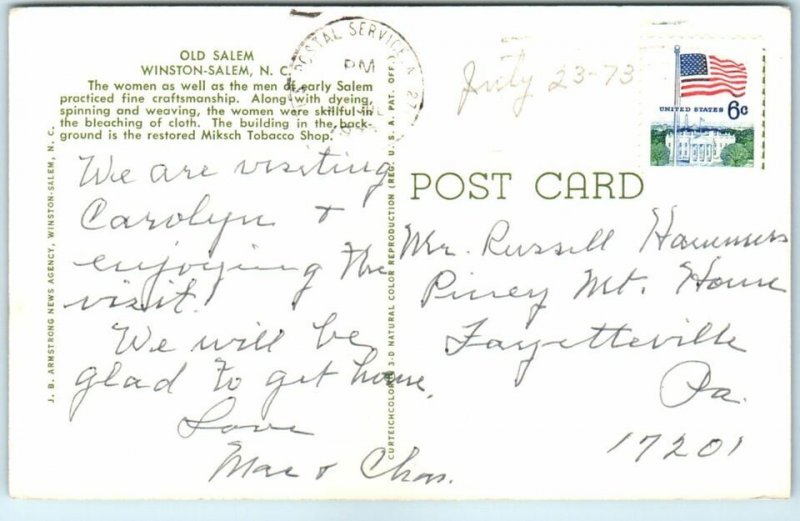 OLD SALEM
WINSTON-SALEM, N. C.
The women as well as the men of early Salem
practiced fine craftsmanship. Along with dyeing,
spinning and weaving, the women were skillful in
the bleaching of cloth. The building in the back-
ground is the restored Miksch Tobacco Shop.
J. B. ARMSTRONG NEWS AGENCY, WINSTON-SALEM, N. C.
We are visiting
Carolyn +
enjoying the
visit!
We will be
glad to get home.
Love
Mae & Chas.
CURTEICHCOLOR 3-D NATURAL COLOR REPRODUCTION (REG. U.S.A. PAT. OFF.)
POSTAL SERVICE
PM
July 23-73
UNITED STATES 6c
POST CARD
Mr. Russell Hammers
Piney Mt. Home
Fayetteville
Pa.
17201